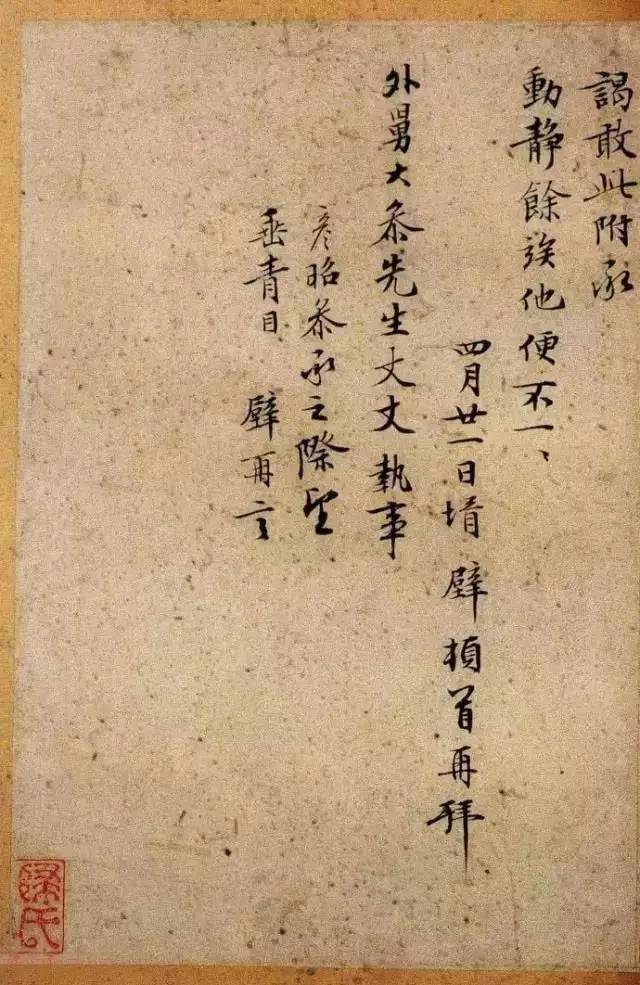 謁敢此附承
動靜餘俟他便不一、
四月廿一日壻 壁頓首再拜
外舅大叅先生丈丈執事
彥昭叅承之際望
垂青目 壁再言